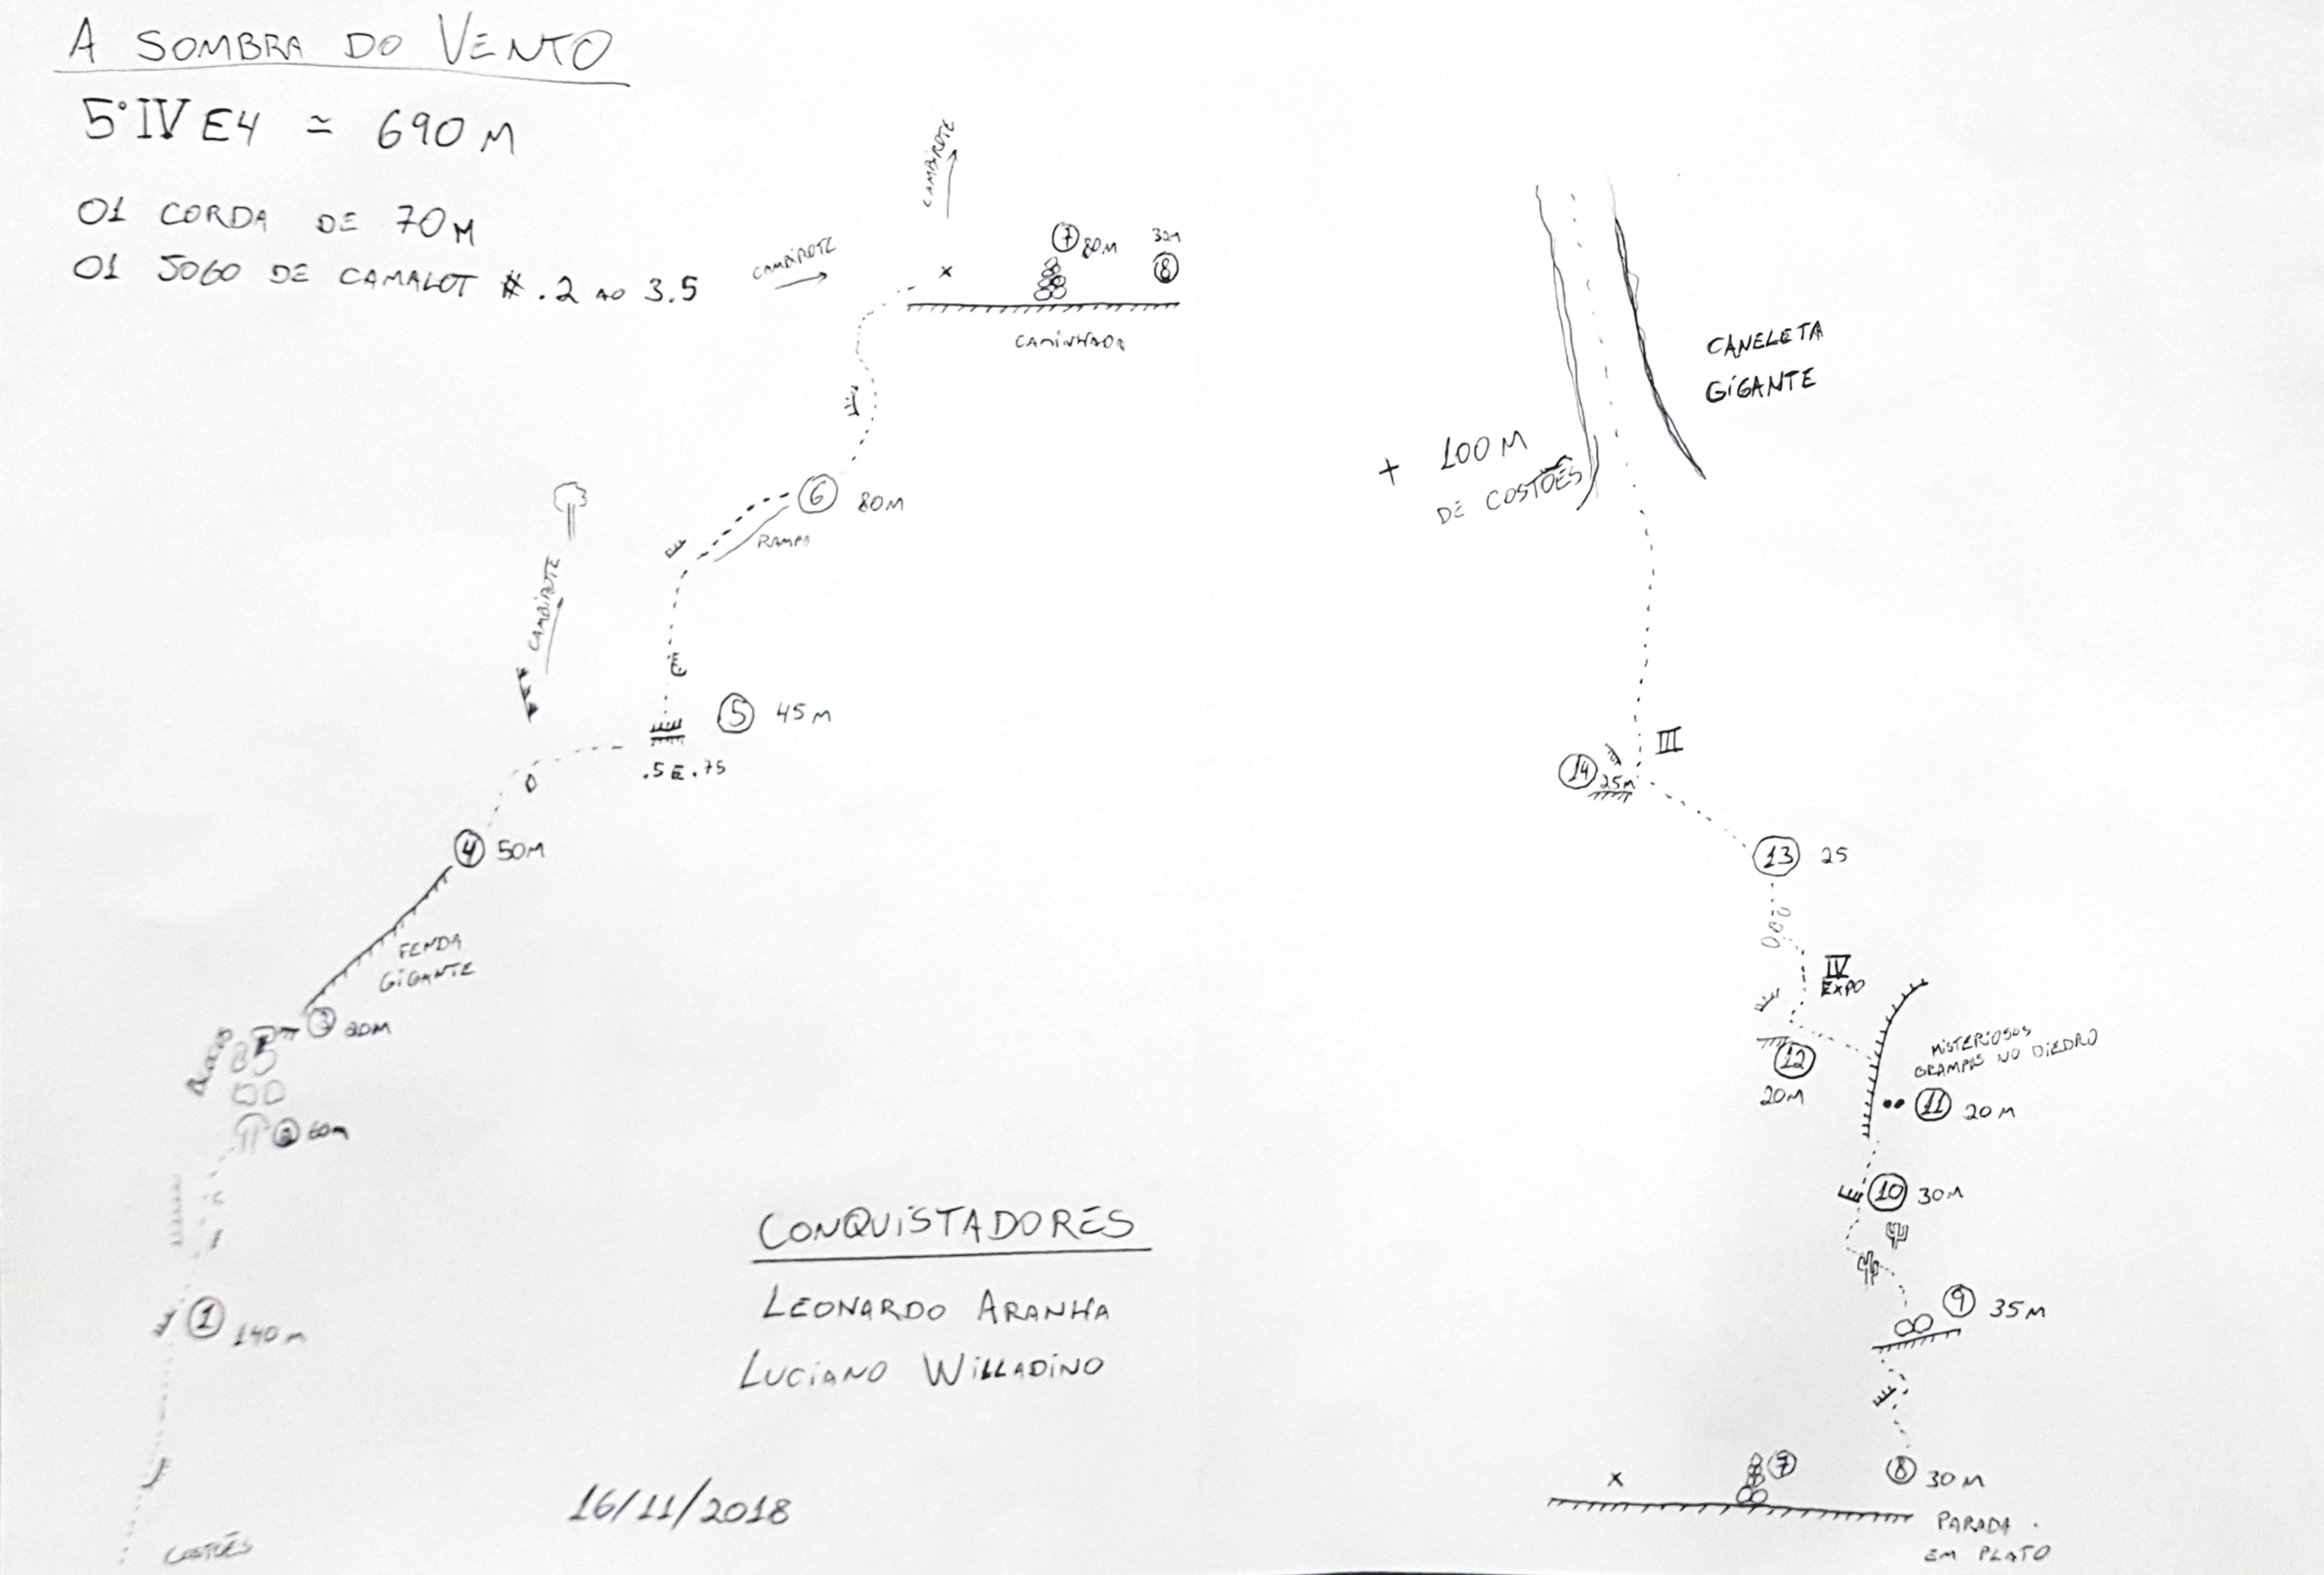 A SOMBRA DO VENTO
5° IV E4 ≃ 690 M
01 CORDA DE 70M
01 JOGO DE CAMALOT #.2 AO 3.5
CAMBIROTE
CAMBIROTE
7 80M
32M
8
CAMINHADA
6 80M
RAMPA
CAMBIROTE
5 45M
.5 E .75
4 50M
FENDA
GIGANTE
3 20M
BLOCOS
2 60M
1 140M
COSTÕES
CONQUISTADORES
LEONARDO ARANHA
LUCIANO WILLADINO
16/11/2018
CANELETA
GIGANTE
+ 100M
DE COSTÕES
III
14 25M
13 25
IV
EXPO
MISTERIOSOS
GRAMPOS NO DIEDRO
12
20M
11 20M
10 30M
9 35M
X 7 8 30M
PARADA
EM PLATO